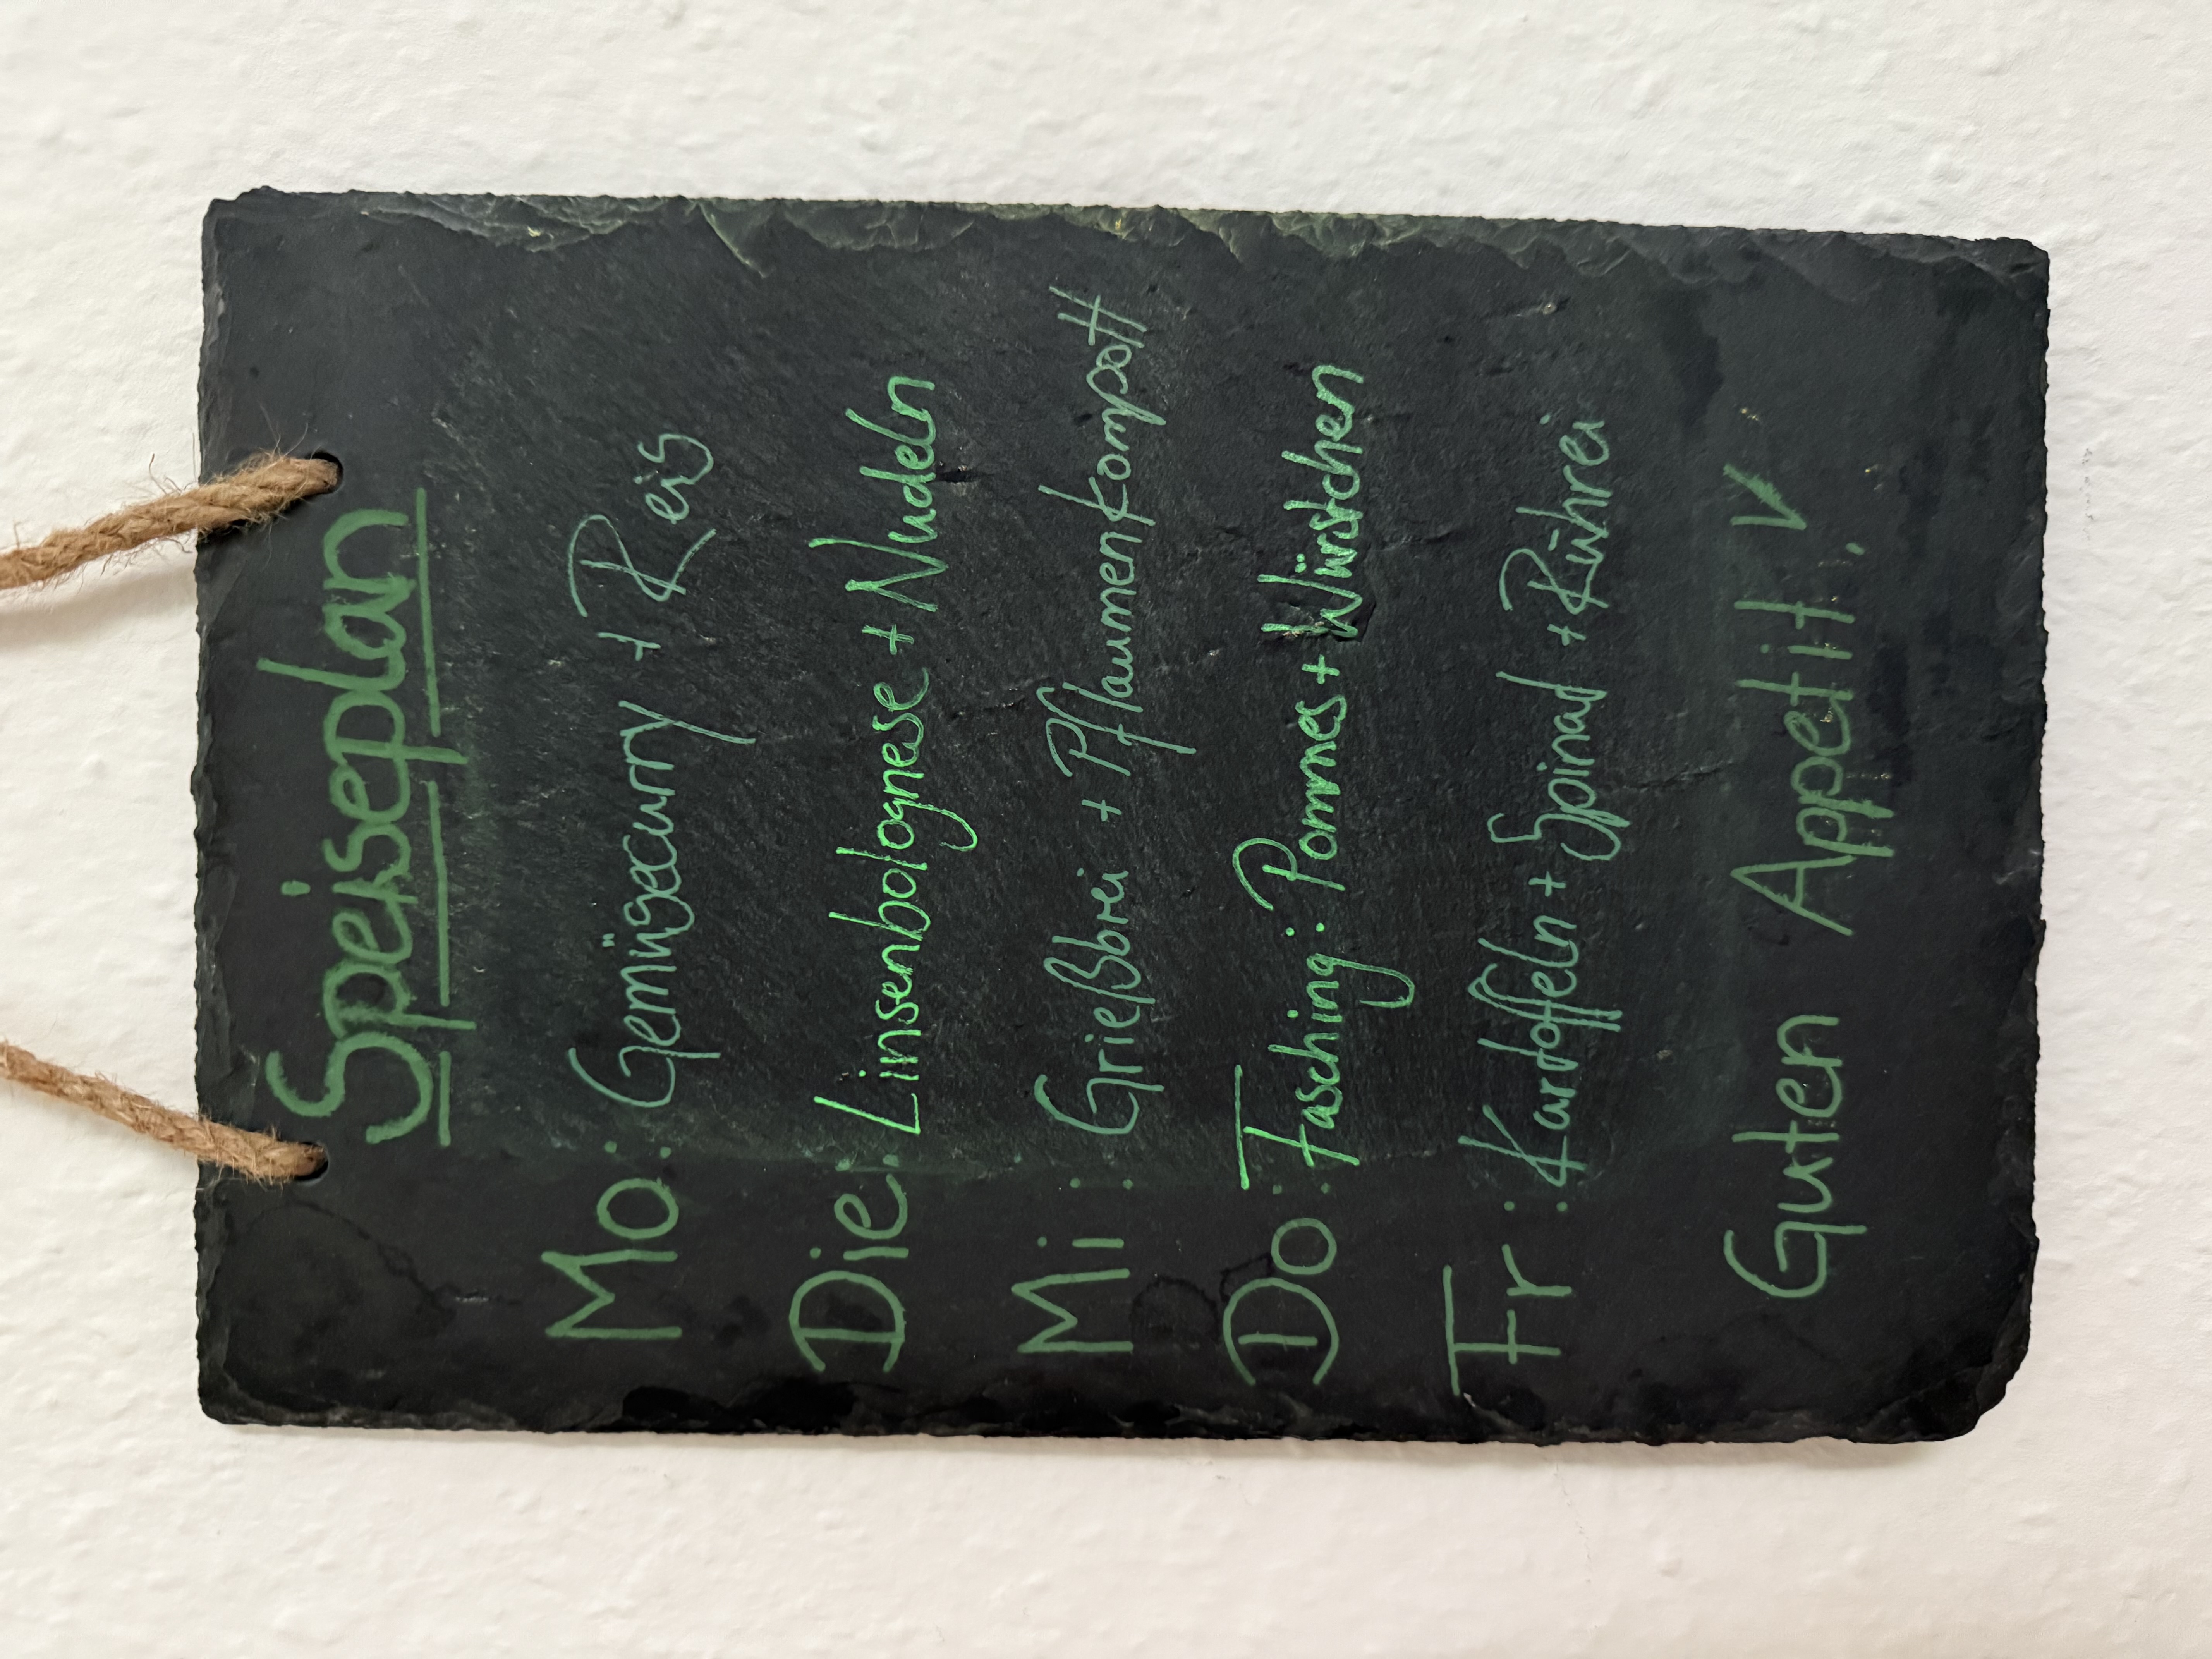 Speiseplan
Mo: Gemüsecurry + Reis
Die: Linsenbolognese + Nudeln
Mi: Grießbrei + Pflaumenkompott
Do: Fasching: Pommes + Würstchen
Fr: Kartoffeln + Spinat + Rührei
Guten Appetit!